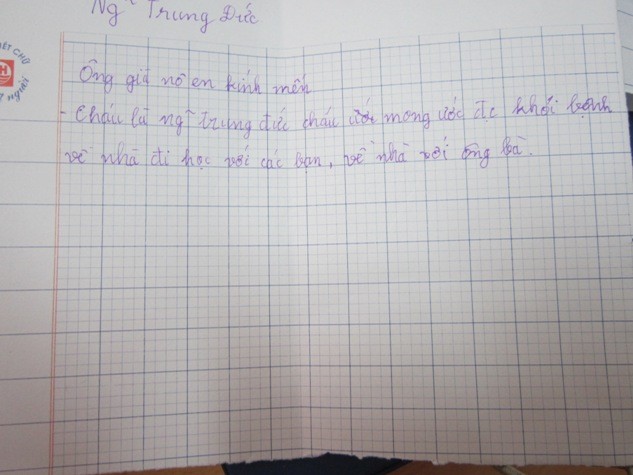 Ng~ Trung Đức
ÉT CHỮ
H
NGƯỜI
Ông già nô en kính mến
- Cháu là ng~ trung đức cháu ước mong ước đc khỏi bệnh
về nhà đi học với các bạn, về nhà với ông bà.